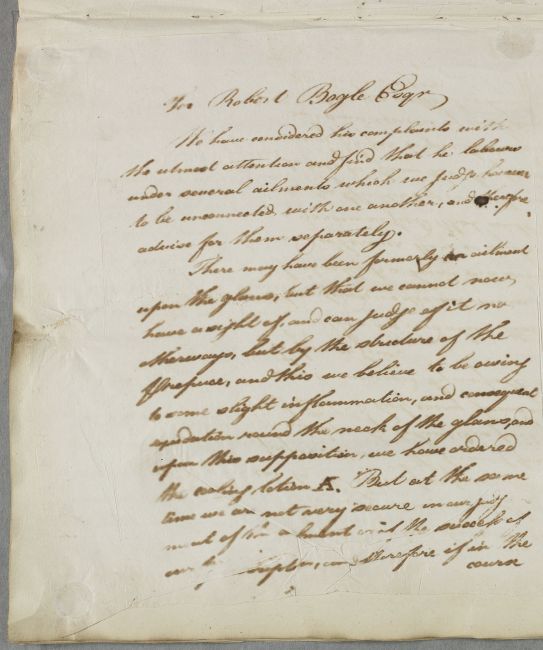 For Robert Bogle Esqr
We have considered his complaints with
the utmost attention and find that he labours
under several ailments which we judge however
to be unconnected with one another, and therefore
advise for them separately.
There may have been formerly an ailment
upon the glans, but that we cannot now
have a sight of, and can judge of it no
otherways, but by the stricture of the
Prepuce, and this we believe to be owing
to some slight inflammation, and consequent
exudation round the neck of the glans, and
upon this supposition, we have ordered
the cooling lotion A. But at the same
time we are not very secure in our judg
ment of the ailment and the success of
our and therefore if in the
course